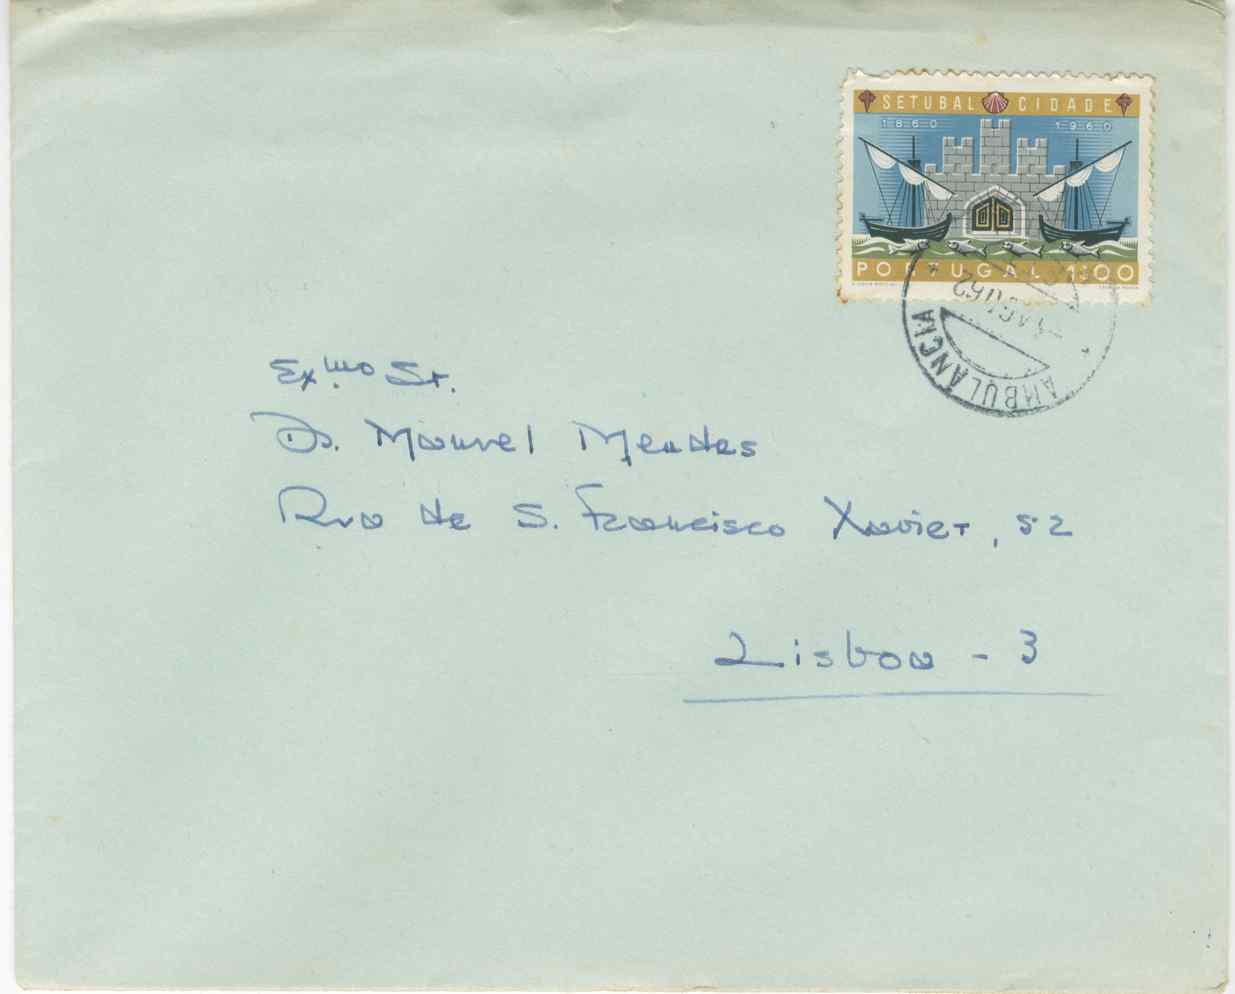 SETUBAL CIDADE
1860 1960
PORTUGAL 1$00
AMBULANCIA
AGO 62
Ex.mo Sr.
Dr. Manuel Mendes
Rua de S. Francisco Xavier, 52
Lisboa - 3